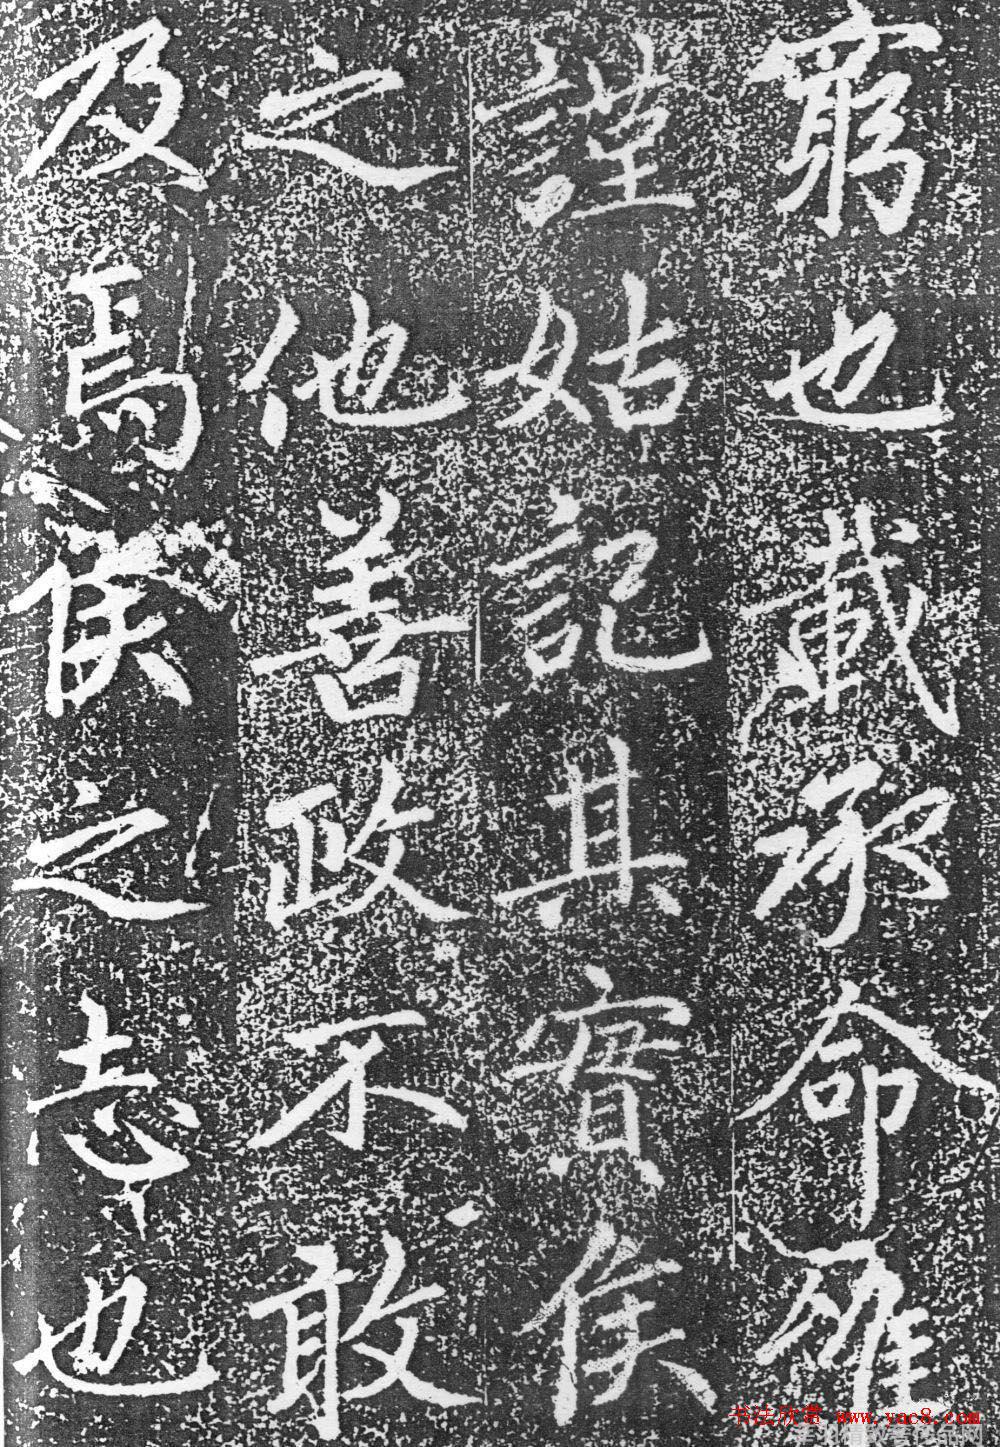 窮也載承命
謹姑記其實侯
之他善政不敢
及焉侯之志也
书法欣赏 www.yac8.com